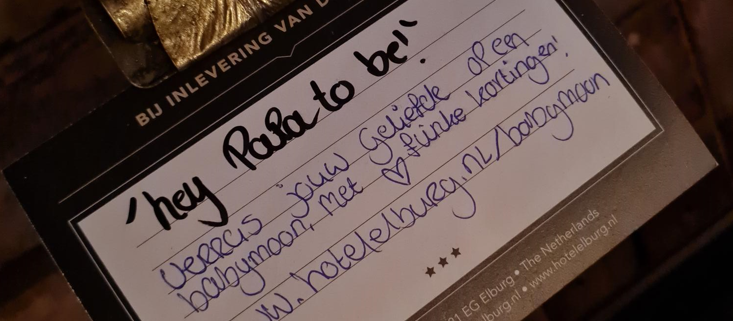 BIJ INLEVERING VAN D
"hey Papa to be!"
Verras jouw geliefde op een
babymoon, met ♡ flinke kortingen!
w.hotelelburg.nl/babymoon
★★★
21 EG Elburg • The Netherlands
lburg.nl • www.hotelelburg.nl